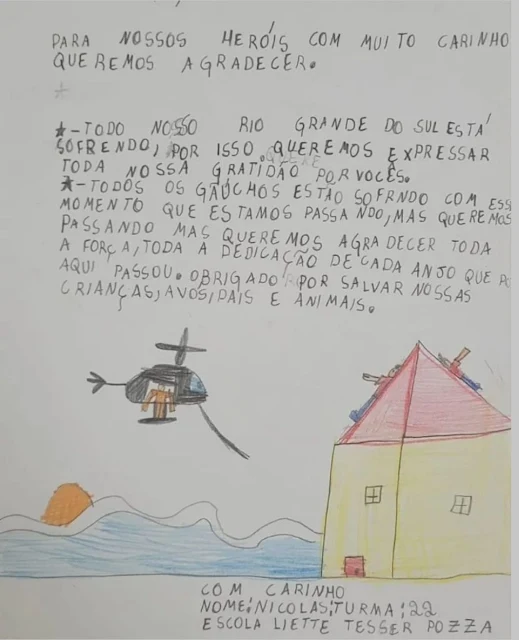 PARA NOSSOS HERÓIS COM MUITO CARINHO
QUEREMOS AGRADECER.
★-TODO NOSSO RIO GRANDE DO SUL ESTÁ
SOFRENDO, POR ISSO QUEREMOS EXPRESSAR
TODA NOSSA GRATIDÃO POR VOCÊS.
★-TODOS OS GAÚCHOS ESTÃO SOFRNDO COM ESS
MOMENTO QUE ESTAMOS PASSANDO, MAS QUEREMOS
PASSANDO MAS QUEREMOS AGRADECER TODA
A FORÇA, TODA A DEDICAÇÃO DE CADA ANJO QUE PO
AQUI PASSOU. OBRIGADO POR SALVAR NOSSAS
CRIANÇAS, AVOS, PAIS E ANIMAIS.
COM CARINHO
NOME: NICOLAS; TURMA: 22
ESCOLA LIETTE TESSER POZZA